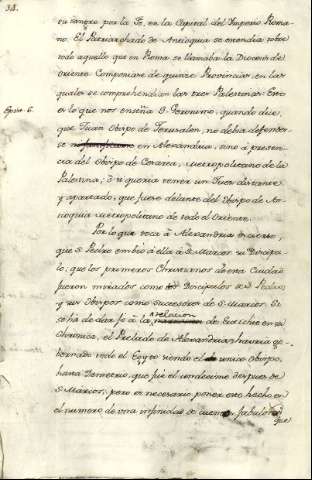 38.
su sangre por la Fe, en la Capital del Imperio Roma-
no. El Patriarchado de Antioquia se entendia sobre
todo aquello que en Roma se llamaba la Diocesis de
Oriente. Componiase de quinze Provincias, en las
quales se comprehendian las tres Palestinas. Esto
es lo que nos enseña S. Geronimo, quando dice,
Epist. 6.
que Juan Obispo de Jerusalen, no debia defender-
se en Alexandria, sino à presen-
cia del Obispo de Cesarea, Metropolitano de la
Palestina; ò si queria tener un Juez distante
y apartado, que fuese delante del Obispo de An-
tioquia Metropolitano de todo el Oriente.
Por lo que toca à Alexandria es cierto,
que S. Pedro embiò à ella à S. Marcos su Discipu-
lo, que los primeros Christianos de esta Ciudad
fueron mirados como Discipulos de S. Pedro,
y sus Obispos como sucesores de S. Marcos. Si
se hà de dar fè à la relacion de Eutichio en su
Chronica, el Prelado de Alexandria havria go-
bernado todo el Egypto siendo el unico Obispo,
hasta Demetrio, que fuè el undecimo despues de
S. Marcos; pero es necesario poner este hecho en
el numero de una infinidad de cuentos fabulosos,
que